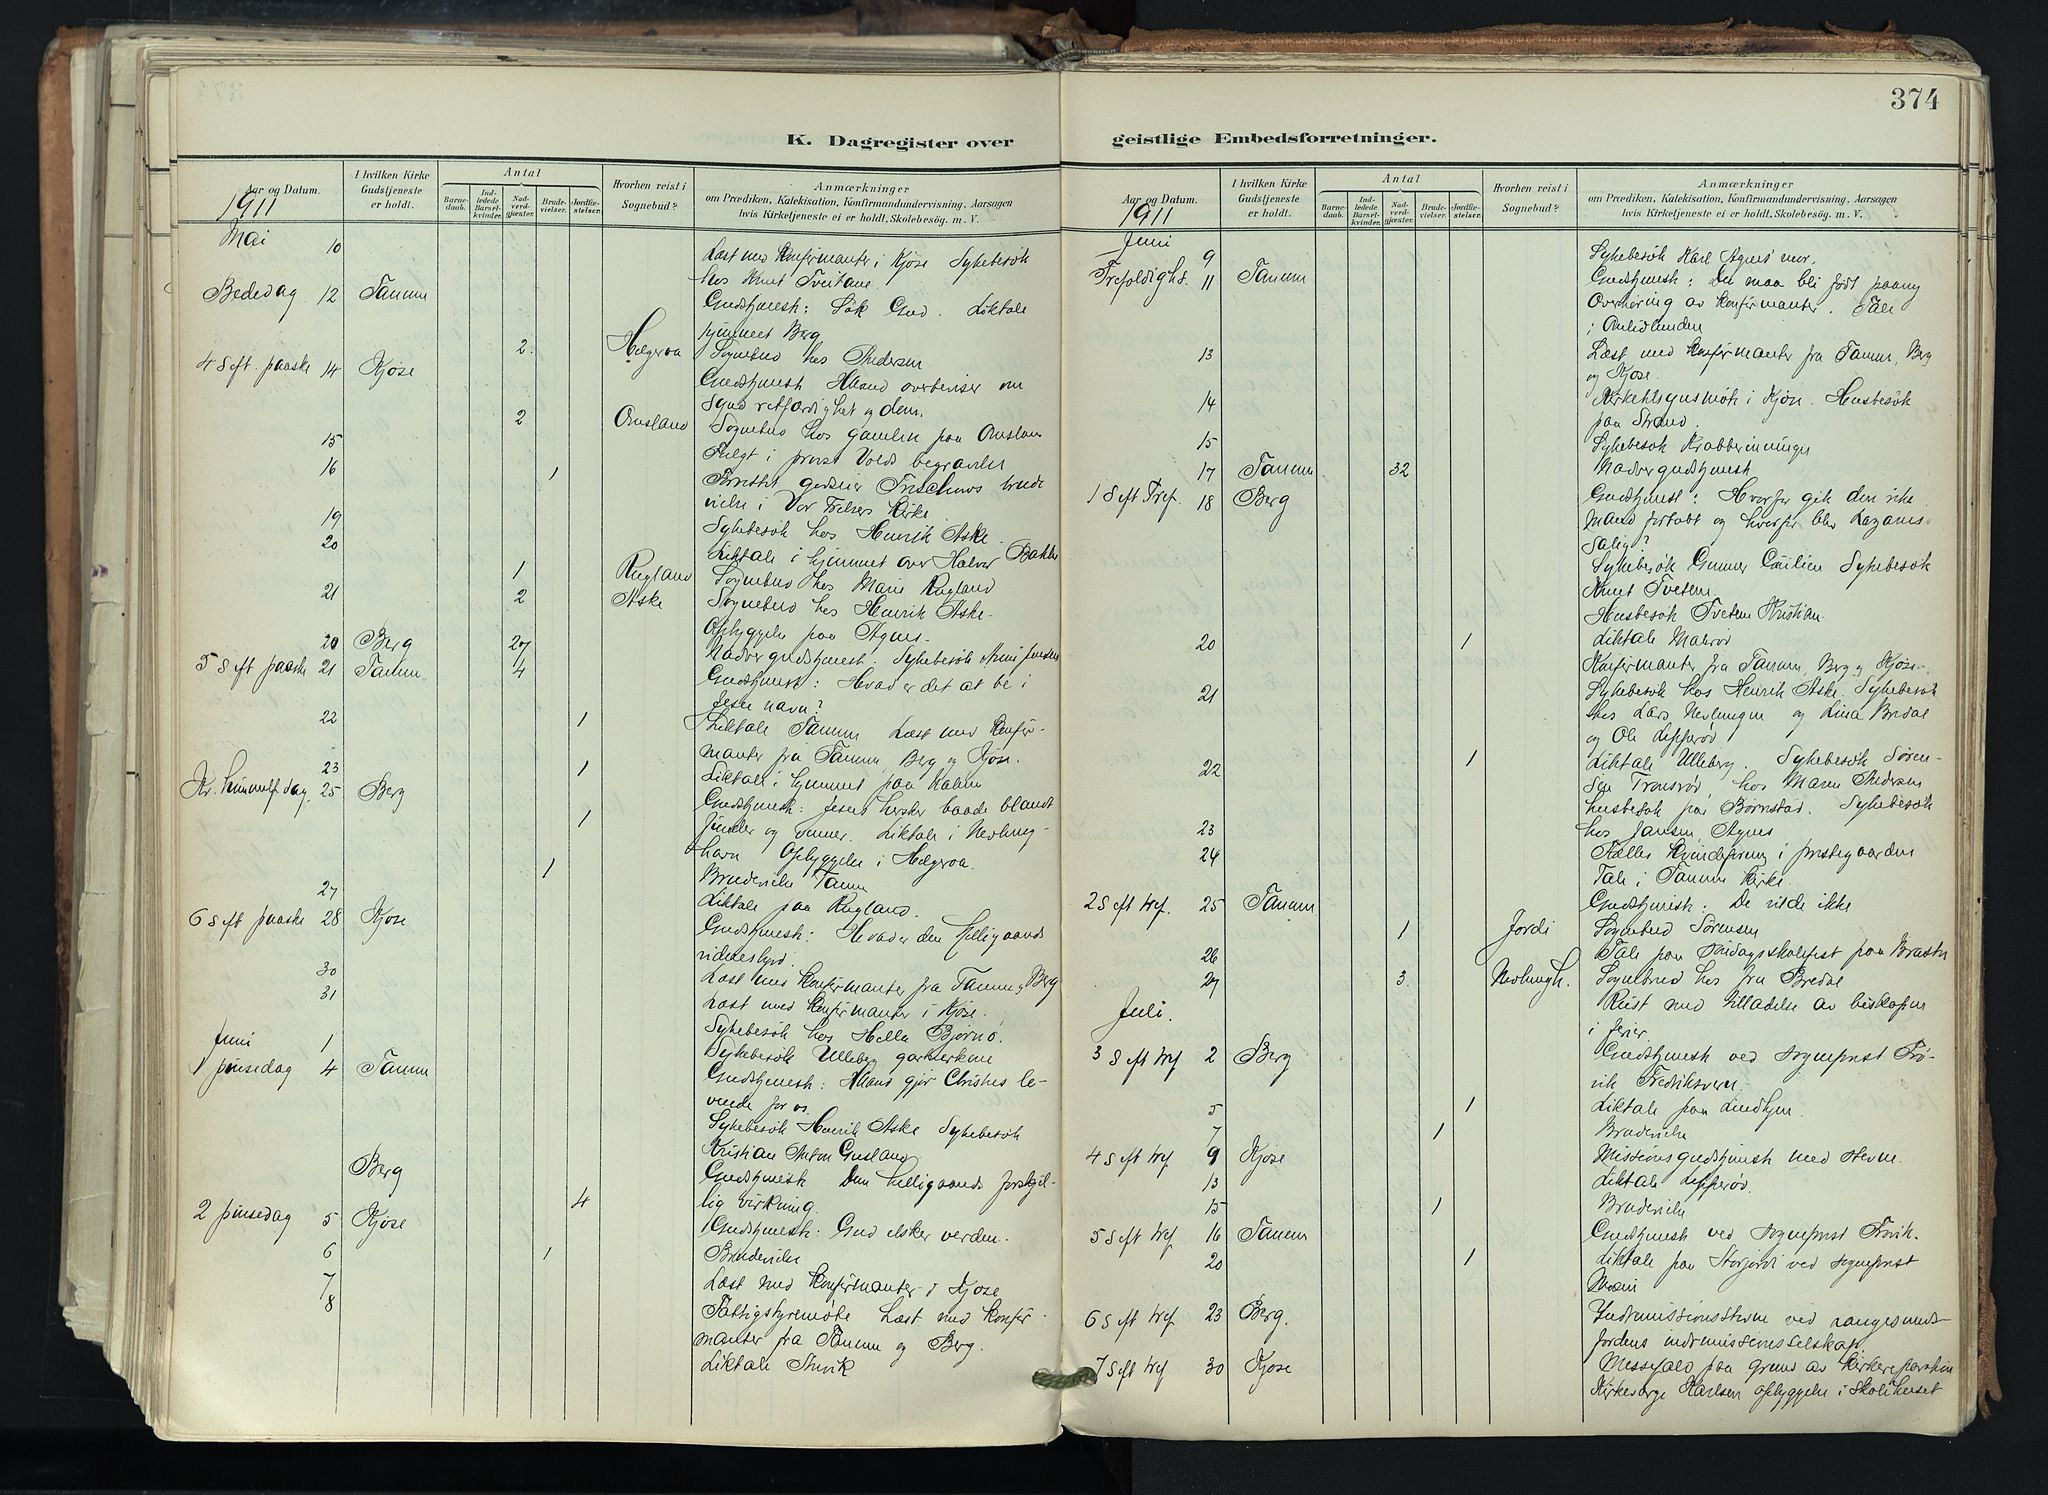 374
K. Dagregister over
Aar og Datum.
I hvilken Kirke Gudstjeneste er holdt.
Antal
Barnedaab.
Indledede Barselkvinder.
Nadverdgjæster.
Brudevielser.
Jordfæstelser.
Hvorhen reist i Sognebud?
Anmærkninger
om Prædiken, Katekisation, Konfirmandundervisning, Aarsagen
hvis Kirketjeneste ei er holdt, Skolebesøg. m. V.
1911
Mai 10 Læst med Konfirmanter i Kjose Sykebesök
hos Knut Tveitane
Bededag 12 Tanum Gudstjenest: Sök Gud. Liktale
hjemmet Berg
2. Helgeroa Sognebud hos Andersen
4 S eft. paaske 14 Kjose Gudstjenest Aand overbeviser om
Synd retfærdighet og dom.
2 Omsland Sognebud hos gamlen paa Omsland
15 Fulgt i prost Volds begravelse
16 1 Forrettet godseier Treschows brude
vielse i Vor Frelsers Kirke
19 Sykebesök hos Henrik Aske.
20 Liktale i hjemmet over Halvor Bakke
1 Rugland Sognebud hos Marie Rugland
21 2 Aske Sognebud hos Henrik Aske.
Opbyggelse paa Agnes.
20 Berg 27 Nadvergudstjenest. Sykebesök Jensen
5 S eft paaske 21 Tanum 4 Gudstjenest: Hvad er det at be i
Jesu navn?
22 1 Liktale Tanum Læst med Konfir-
manter fra Tanum, Berg og Kjose.
23 1 Liktale i hjemmet paa
Kr. himmelf dag. 25 Berg Gudstjenest: Jesus hersker baade blandt
1 fiender og venner. Liktale i Nevlung-
havn Opbyggelse i Helgeroa.
1 Brudevielse Tanum
27 Liktale paa Rugland.
6 S eft paaske 28 Kjose Gudstjenest: Hvad er den helligaands
vidnesbyrd.
30 Læst med Konfirmanter fra Tanum og Berg
31 Læst med Konfirmanter i Kjose.
Juni 1 Sykebesök hos Helle Bjørnø.
Sykebesök Ulleberg
1 pinsedag 4 Tanum Gudstjenest: Aand gjör Christus le-
vende for os.
Sykebesök Henrik Aske Sykebesök
Kristian Anton Gusland
Berg Gudstjenest Den helligaands forskjel-
4 lig virkning.
2 pinsedag 5 Kjose Gudstjenest: Gud elsker verden.
6 1 Brudevielse
7 Læst med Konfirmanter i Kjose
8 Fattigstyremöte Læst med Konfir-
manter fra Tanum og Berg.
Liktale
geistlige Embedsforretninger.
Aar og Datum.
I hvilken Kirke Gudstjeneste er holdt.
Antal
Barnedaab.
Indledede Barselkvinder.
Nadverdgjæster.
Brudevielser.
Jordfæstelser.
Hvorhen reist i Sognebud?
Anmærkninger
om Prædiken, Katekisation, Konfirmandundervisning, Aarsagen
hvis Kirketjeneste ei er holdt, Skolebesøg. m. V.
1911
Juni 9 Sykebesök Karl Agnes mor.
Trefoldighs. 11 Tanum Gudstjenest: Du maa bli født paany
Overhöring av Konfirmanter. Tale
i Omlidlunden
13 Læst med Konfirmanter fra Tanum, Berg
og Kjose.
14 Kirketilsynsmöte i Kjose. Husbesök
paa Strand.
15 Sykebesök Krabberinningen
17 Tanum 32 Nadvergudstjenest
1 S eft Tref. 18 Berg Gudstjenest: Hvorfor gik den rike
mand fortabt og hvorfor blev Lazarus
salig?
Sykebesök Gunner Sykebesök
Knut Tveten
Husbesök Tveten Kristian.
20 1 Liktale Malerød
Konfirmanter fra Tanum, Berg og Kjose.
21 Sykebesök hos Henrik Aske. Sykebesök
hos Lars Nevlungen og Lina Bredal
og Ole Lefferød
22 1 Liktale Ulleberg. Sykebesök Søren-
sen Tronsrød, hos Maren Andersen
husbesök paa Børnstad. Sykebesök
23 hos Jansen Agnes
24 Fælles Kvindeforening i prestegaarden
Tale i Tanum Kirke.
2 S eft tref. 25 Tanum Gudstjenest: De vilde ikke
1 Jordi Sognebud Sørensen
26 Tale paa söndagsskolefest paa
27 3. Nevlungh. Sognebud hos fru Bredal
Reist med tilladelse av biskopen
Juli. i ferier.
3 S eft tref 2 Berg Gudstjenest ved sogneprest Frö-
vik Fredriksvern.
5 1 Liktale paa Lindhjem.
7 1 Brudevielse
4 S eft tref 9 Kjose Missionsgudstjenest med stevne.
13 Liktale Lefferød.
15 1 Brudevielse
5 S eft tref 16 Tanum Gudstjenest ved sogneprest Frövik.
20 1 Liktale paa Storjordi ved sogneprest
6 S eft tref. 23 Berg. Indremissionsstevne ved Langesunds-
fjordens indremissionsselskap
7 S eft tref 30 Kjose Messefald paa grund av Kirkereparation
Kirkesanger Karlsen opbyggelse i Skolehuset